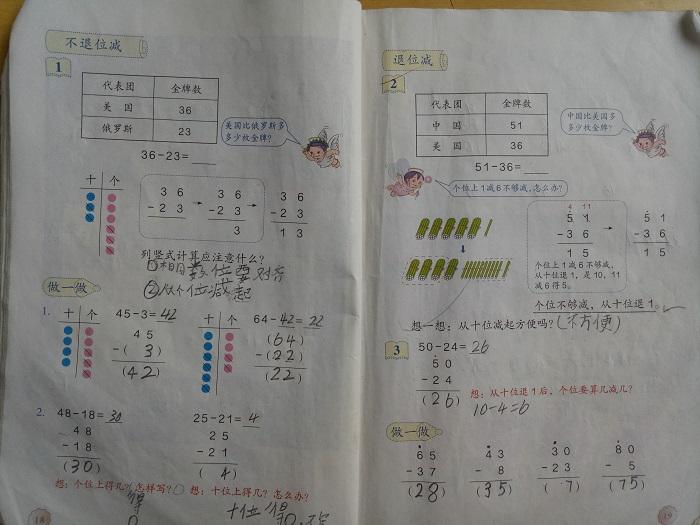 不退位减
1
代表团 金牌数
美 国 36
俄罗斯 23
美国比俄罗斯多
多少枚金牌?
36-23=
十 个
3 6
- 2 3
3 6
- 2 3
3
3 6
- 2 3
1 3
列竖式计算应注意什么?
①相同数位要对齐
②从个位减起
做一做
1.
十 个
45-3=42
4 5
-( 3)
(42)
十 个
64-42=22
(64)
-(22)
(22)
2.
48-18=30
4 8
- 1 8
(30)
25-21=4
2 5
- 2 1
(4)
想:个位上得几?怎样写?
得
0
想:十位上得几?怎么办?
十位得
18
退位减
2
代表团 金牌数
中 国 51
美 国 36
中国比美国多
多少枚金牌?
51-36=
个位上1减6不够减,怎么办?
4 11
5 1
- 3 6
1 5
个位上1减6不够减,
从十位退1,是10,11
减6得5。
5 1
- 3 6
1 5
个位不够减,从十位退1。
想一想:从十位减起方便吗?(不方便)
3
50-24=26
5 0
- 2 4
(26)
想:从十位退1后,个位要算几减几?
10-4=6
做一做
6 5
- 3 7
(28)
4 3
- 8
(35)
3 0
- 2 3
(7)
8 0
- 5
(75)
19